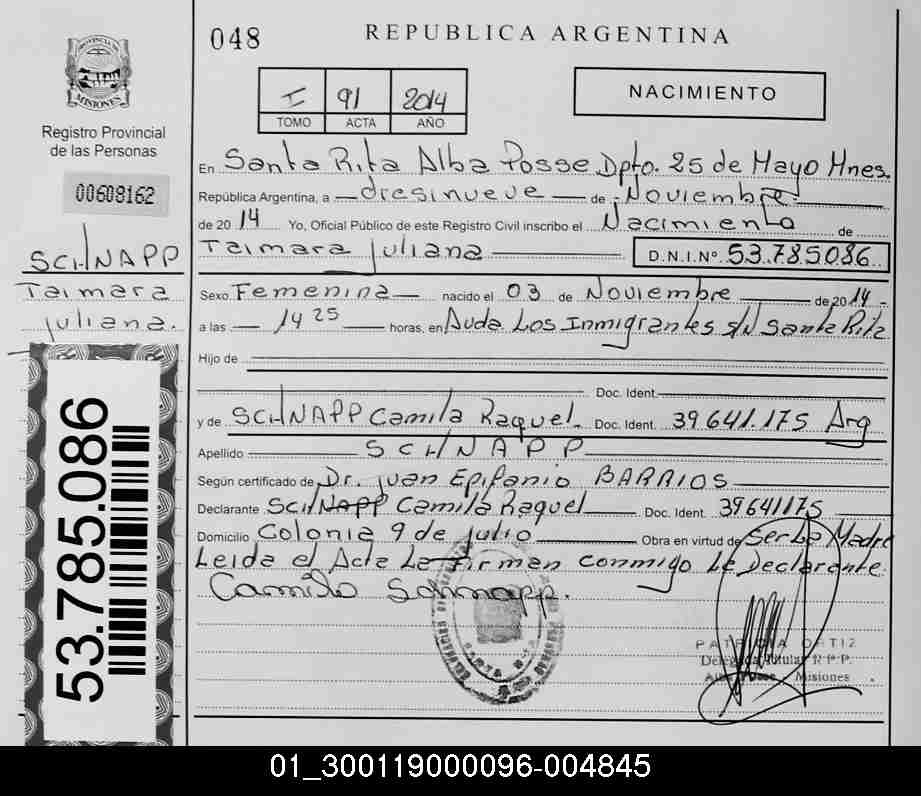 048
REPUBLICA ARGENTINA
PROVINCIA DE
MISIONES
Registro Provincial
de las Personas
00608162
I 91 2014
TOMO ACTA AÑO
NACIMIENTO
En Santa Rita Alba Posse Dpto. 25 de Mayo Mnes.
República Argentina, a diesinueve de Noviembre
de 2014 Yo, Oficial Público de este Registro Civil inscribo el Nacimiento de
Taimara Juliana D.N.I.Nº 53.785.086
SCHNAPP
Taimara
Juliana.
Sexo Femenina nacido el 03 de Noviembre de 2014
a las 14 25 horas, en Avda Los Inmigrantes s/n Santa Rita
Hijo de
Doc. Ident.
y de SCHNAPP Camila Raquel Doc. Ident. 39.641.175 Arg
Apellido SCHNAPP
Según certificado de Dr. Juan Epifanio BARRIOS
Declarante SCHNAPP Camila Raquel Doc. Ident. 39641175
Domicilio Colonia 9 de Julio Obra en virtud de Ser La Madre
Leida el Acta La Firman conmigo La Declarante
Camila Schnapp.
53.785.086
PATRICIA ORTIZ
Delegada Titular R.P.P.
Alba Posse Misiones
01_300119000096-004845